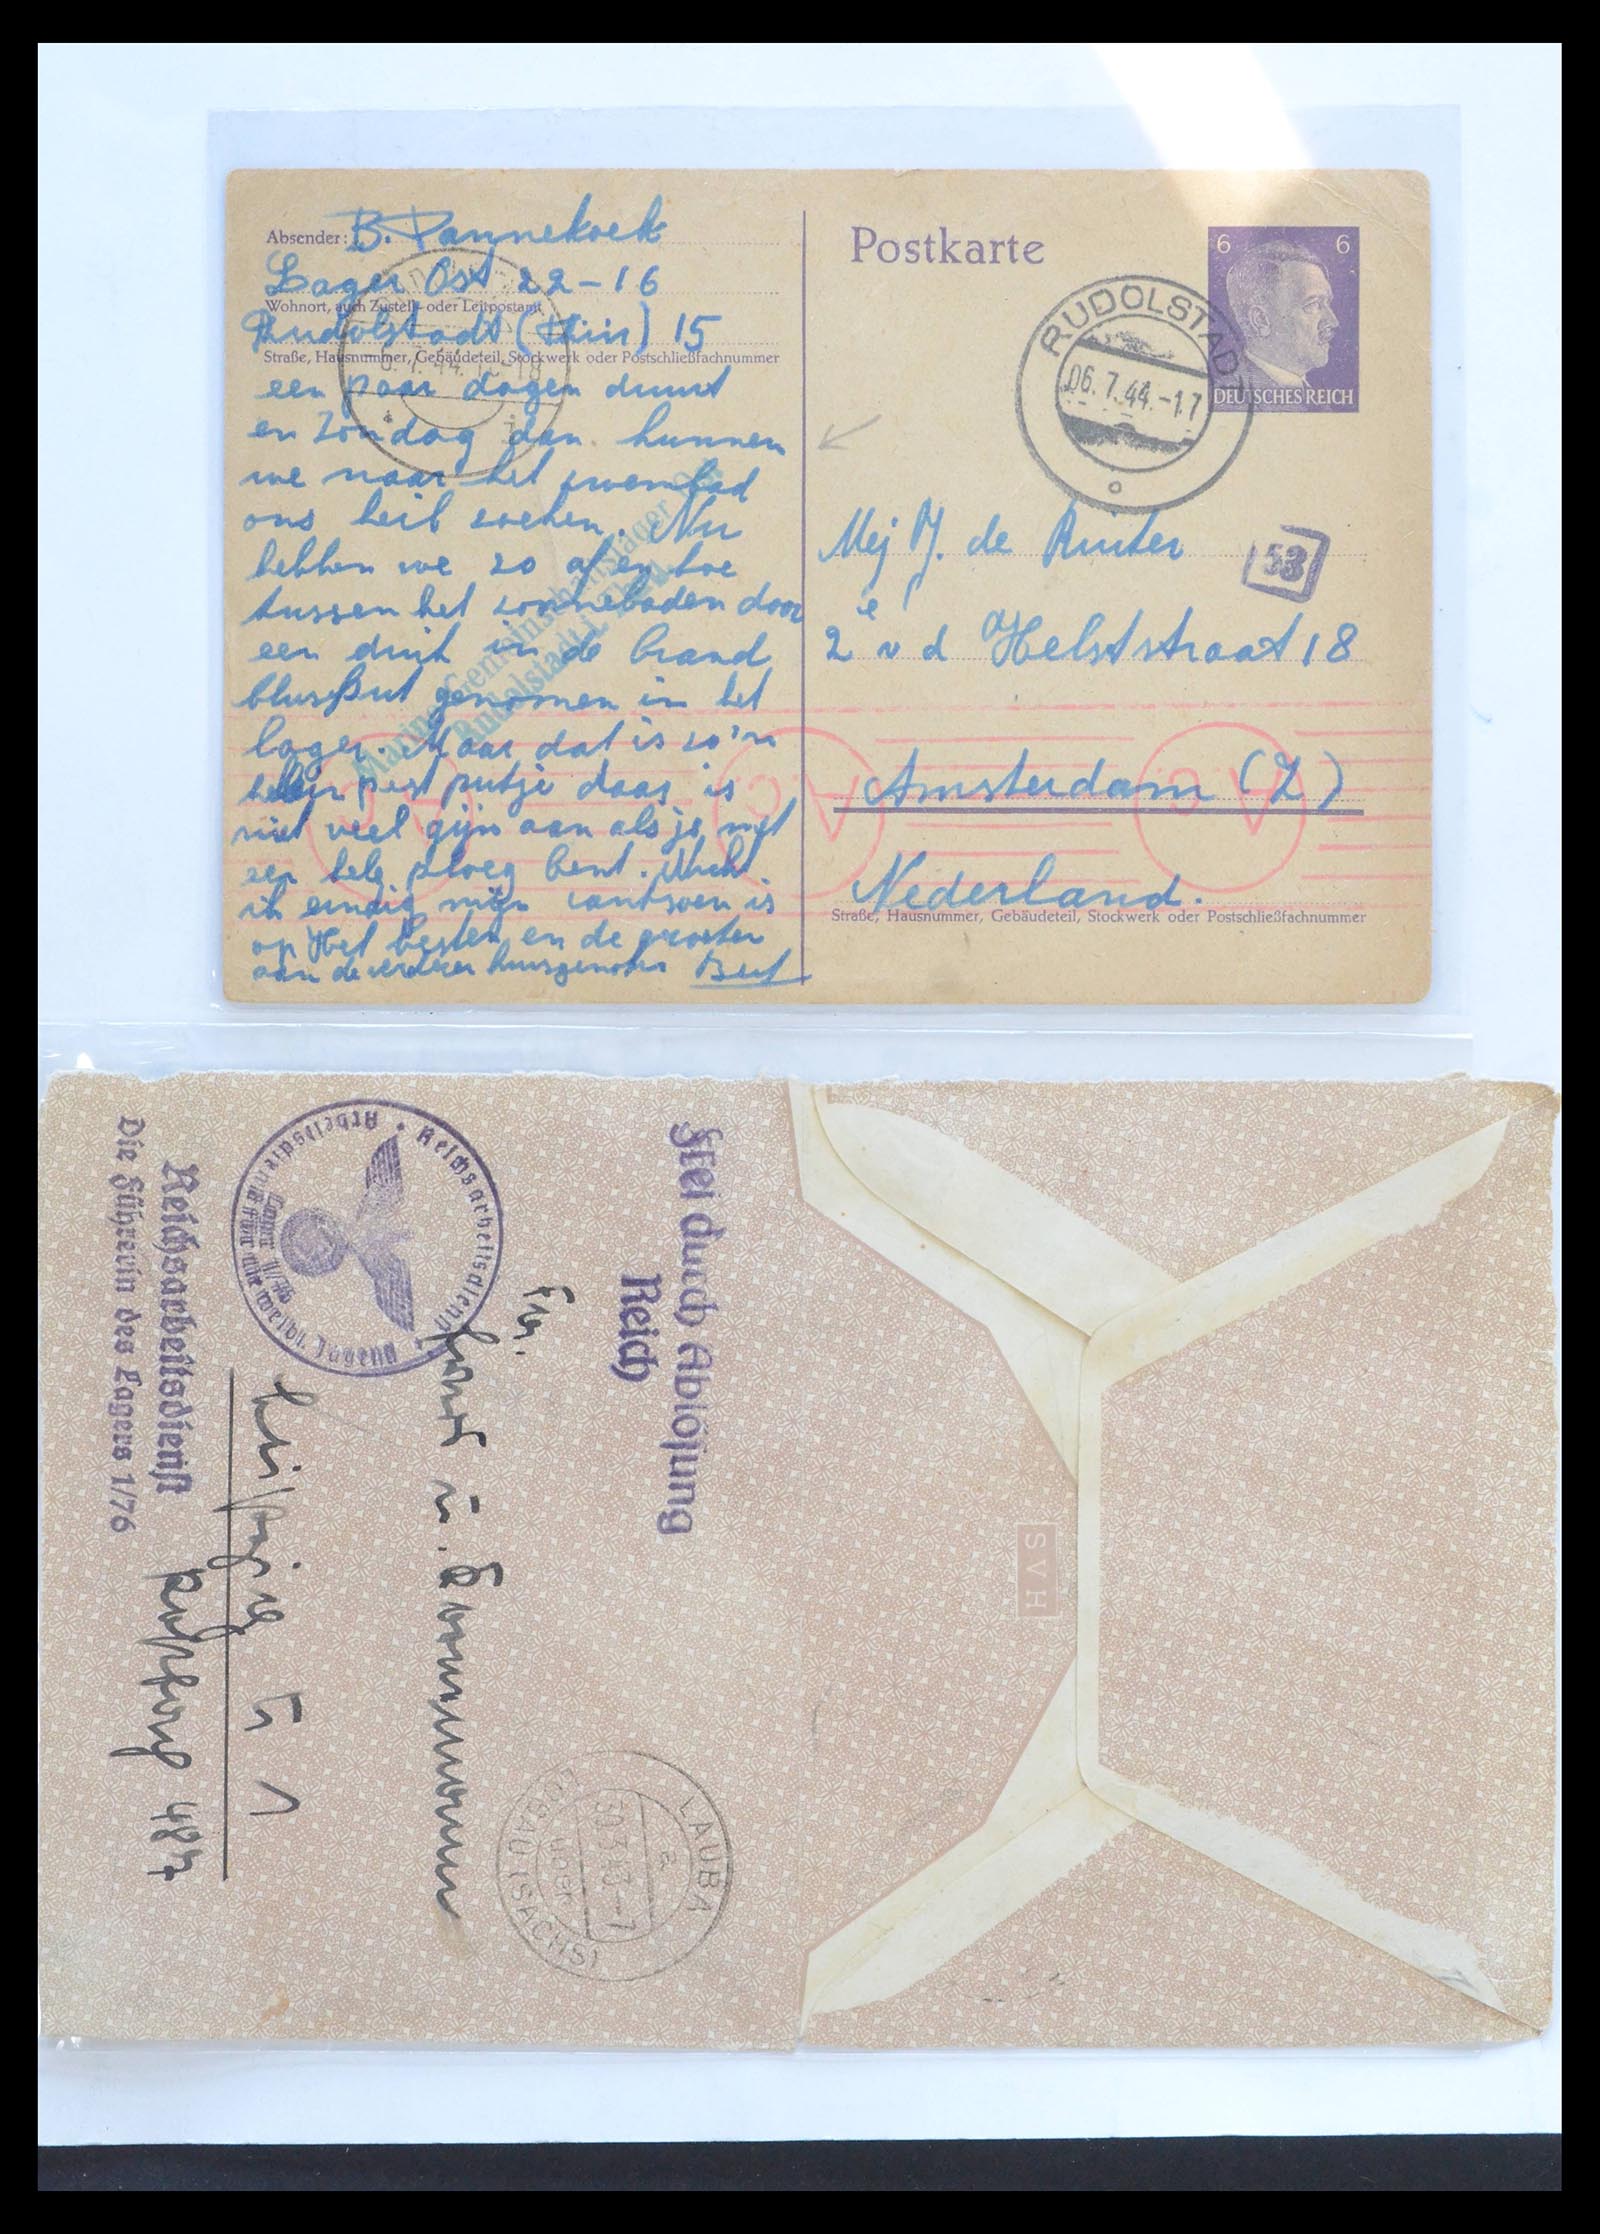 Absender: B. Pannekoek
Lager Ost 22-16
Wohnort, auch Zustell- oder Leitpostamt
Rudolstadt (Thür) 15
Straße, Hausnummer, Gebäudeteil, Stockwerk oder Postschließfachnummer
een paar dagen duurt
en Zondag dan kunnen
we naar het zwembad
ons heil zoeken. Nu
hebben we zo af en toe
tussen het zonnebaden door
een duik in de brand
blusput genomen in het
lager. Maar dat is zo'n
klein pest putje daar is
niet veel gijn aan als je met
een hele ploeg bent. Nu
ik eindig mijn is
op Het beste en de groeten
aan de verdere huisgenoten Bert
Gemeinschaftslager
Rudolstadt i. Thür.
Postkarte
6 6
DEUTSCHES REICH
RUDOLSTADT
06.7.44.-17
Mej J. de Ruiter
53
2e v d Helststraat 18
Amsterdam (Z)
Nederland.
Straße, Hausnummer, Gebäudeteil, Stockwerk oder Postschließfachnummer
Frei durch Ablösung
Reich
Reichsarbeitsdienst
Reichsarbeitsdienst für die weibl. Jugend
Reichsarbeitsdienst
Die Führerin des Lagers 1/76
LAUBA
über
LÖBAU (SACHS)
a
SVH